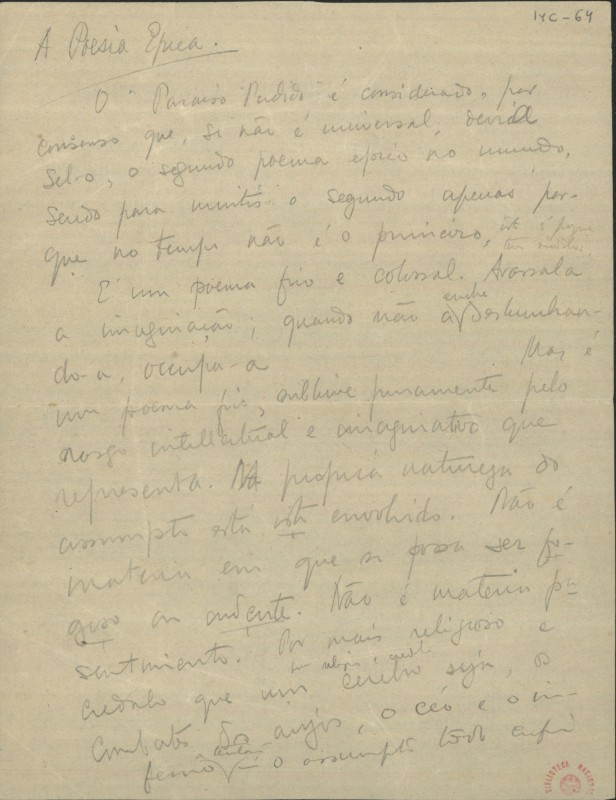 14C-64
A Poesia Epica.
O "Paraiso Perdido" é considerado, por
consenso que, si não é universal, devia
sel-o, o segundo poema epico no mundo,
sendo para muitos o segundo apenas por-
que no tempo não é o primeiro,
É um poema frio e colossal. Avassala
a imaginação; quando não a enche deslumbran-
do-a, occupa-a Mas é
um poema frio, sublime puramente pelo
rasgo intellectual e imaginativo que
representa. Na propria natureza do
assumpto está isto envolvido. Não é
materia em que se possa ser fo-
goso ou ardente. Não é materia pa
sentimento. Por mais religioso e
credulo que um cerebro seja, os
combates dos anjos, o céo e o in-
ferno o assumpto todo enfim
BIBLIOTECA NACIONAL